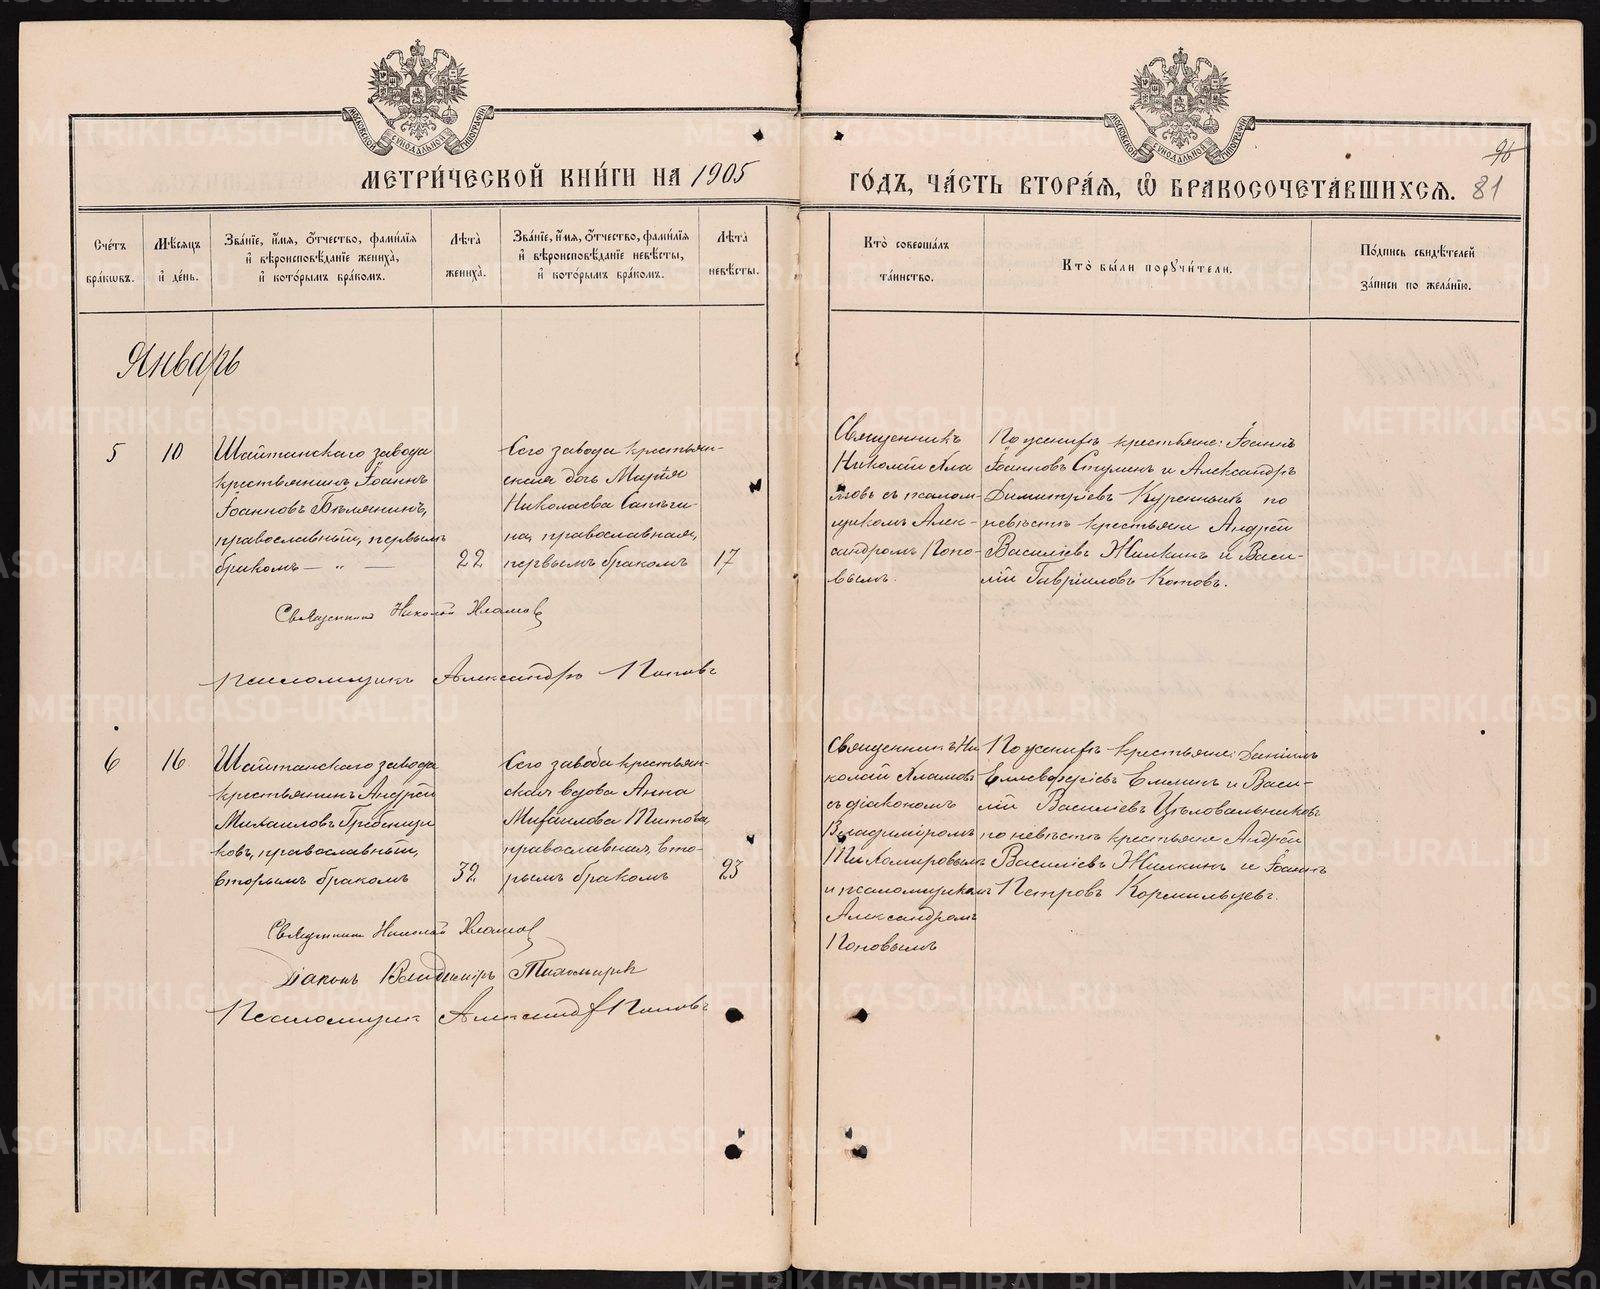 МЕТРИ́ЧЕСКОЙ КНИ́ГИ НА 1905
ГО́ДЪ, ЧА́СТЬ ВТОРА́Ѧ, Ѽ БРАКОСОЧЕТА́ВШИХСѦ.
96
81
Сче́тъ бра́кѡвъ.
Мѣ́сѧцъ и҆ де́нь.
Зва́нїе, и҆́мѧ, ѻ҆́тчество, фами́лїѧ и҆ вѣроисповѣ́данїе жениха̀, и҆ кото́рымъ бра́комъ.
Лѣта̀ жениха̀.
Зва́нїе, и҆́мѧ, ѻ҆́тчество, фами́лїѧ и҆ вѣроисповѣ́данїе невѣ́сты, и҆ кото́рымъ бра́комъ.
Лѣта̀ невѣ́сты.
Кто̀ соверша́лъ та́инство.
Кто̀ бы́ли порꙋчи́тели.
По́дпись свидѣ́телей за́писи по жела́нїю.
Январь
5
10
Шайтанскаго завода
крестьянинъ Іоаннъ
Іоанновъ Бѣлянинъ,
православный, первымъ
бракомъ — „ —
22
Сего завода крестьян-
ская дочь Марія
Николаева Сапѣги-
на, православная,
первымъ бракомъ
17
Священникъ
Николай Хла
мовъ съ псалом-
щикомъ Алек-
сандромъ Попо-
вымъ.
По женихѣ крестьяне: Іоаннъ
Іоанновъ Стулинъ и Александръ
Димитріевъ Куренныхъ по
невѣстѣ крестьяне Андрей
Василіевъ Жилкинъ и Васи-
лій Гавріиловъ Котовъ.
Священникъ Николай Хламовъ
Псаломщикъ Александръ Поповъ
6
16
Шайтанскаго завода
крестьянинъ Андрей
Михаиловъ Гребенщи
ковъ, православный,
вторымъ бракомъ
32
Сего завода крестьян-
ская вдова Анна
Михаилова Титова,
православная, вто-
рымъ бракомъ
23
Священникъ Ни
колай Хламовъ
съ діакономъ
Владиміромъ
Тихомировымъ
и псаломщикомъ
Александромъ
Поповымъ
По женихѣ крестьяне: Даніилъ
Елевферіевъ Емлинъ и Васи-
лій Василіевъ Цѣловальниковъ
по невѣстѣ крестьяне Андрей
Василіевъ Жилкинъ и Іоаннъ
Петровъ Кормильцевъ.
Священникъ Николай Хламовъ
Діаконъ Владиміръ Тихомировъ
Псаломщикъ Александръ Поповъ
METRIKI.GASO-URAL.RU